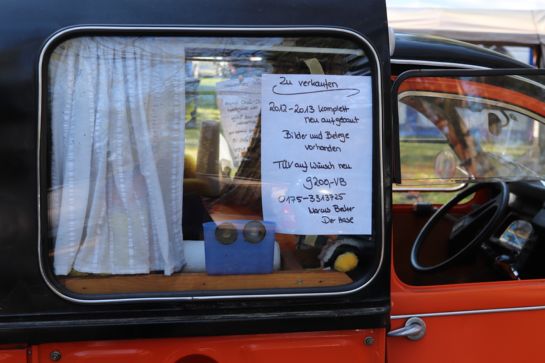 Zu verkaufen
2012-2013 komplett
neu aufgebaut
Bilder und Belege
vorhanden
TÜV auf Wunsch neu
9200,-VB
0175-3313725
Der Hase